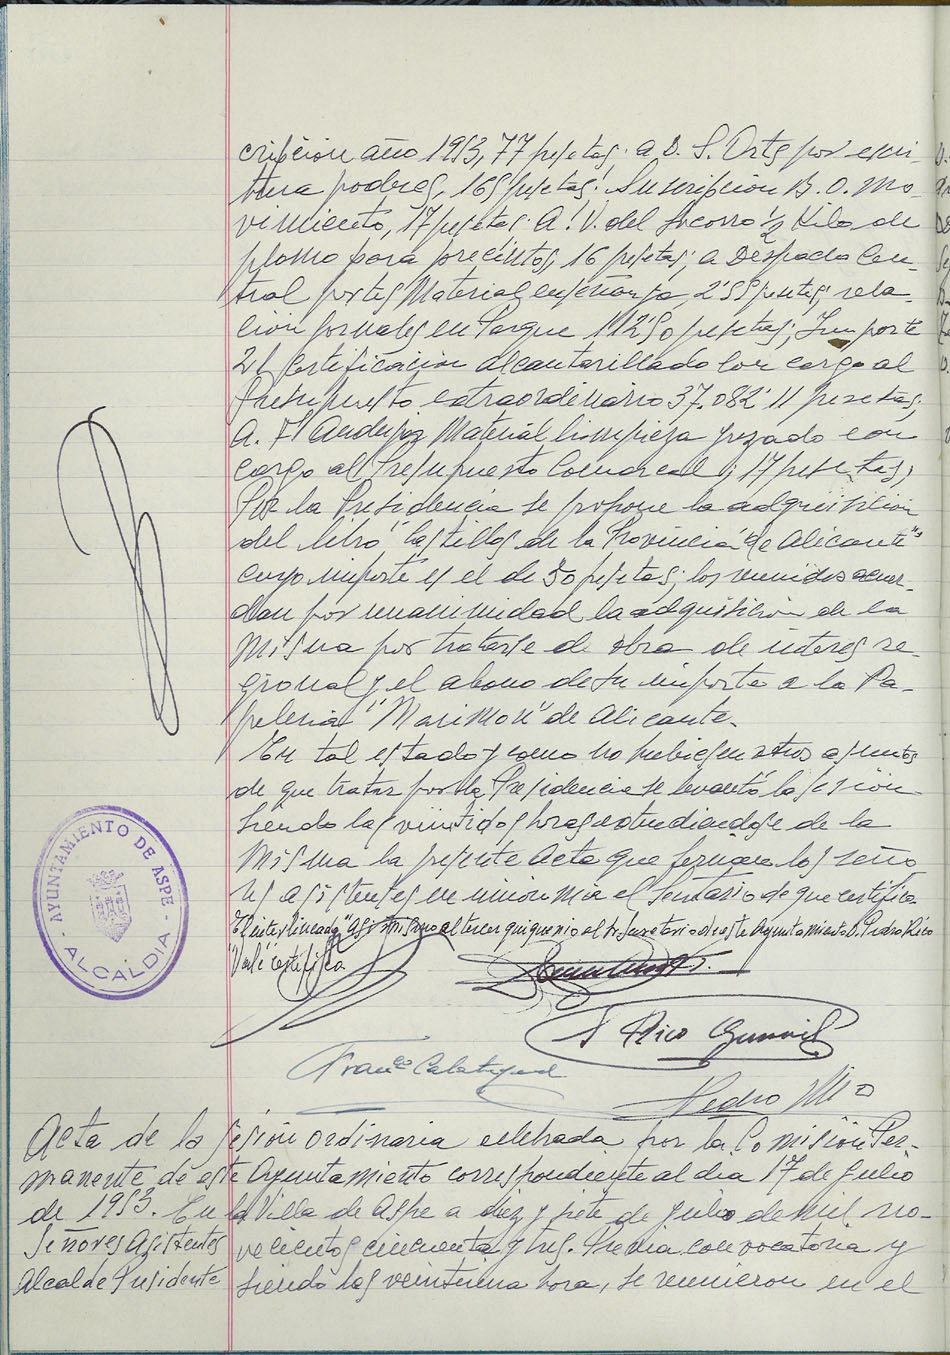 cripcion año 1953, 77 pesetas: a D. S. Orts por escri-
tura poderes, 165 pesetas: Suscripcion B. O. Mo-
vimiento, 17 pesetas. A. V. del Socorro ½ Kilo de
plomo para precintos, 16 pesetas; a Despacho Cen-
tral portes Material enseñanza 2'55 pesetas; rela-
cion jornales en Parque 112'50 pesetas; Importe
21 Certificacion alcantarillado con cargo al
Presupuesto extraordinario 37.082'11 pesetas;
A. Material limpieza juzgado con
cargo al Presupuesto Comarcal; 17 pesetas;
Por la Presidencia se propone la adquisicion
del libro "Castillos de la Provincia de Alicante"
cuyo importe es el de 50 pesetas; los reunidos acuer-
dan por unanimidad la adquisicion de la
misma por tratarse de obra de interes re-
gional y el abono de su importe a la Pa-
peleria "Marimon" de Alicante.
En tal estado y como no hubiesen otros asuntos
de que tratar por la Presidencia se levantó la sesion
siendo las veintidos horas extendiendose de la
misma la presente Acta que firman los seño
res asistentes en union mia el Secretario de que certifico
El interlineado "Asi mismo al tercer quiquenio al Sr. Secretario de este Ayuntamiento D. Pedro Rico
"Vale" certifico
AYUNTAMIENTO DE ASPE
ALCALDIA
Rico
Franco Calatayud
Pedro
Acta de la sesión ordinaria celebrada por la Comisión Per-
manente de este Ayuntamiento correspondiente al dia 17 de Julio
de 1953. En la Villa de Aspe a diez y siete de Julio de mil no-
Señores Asistentes vecientos cincuenta y tres. Previa convocatoria y
Alcalde Presidente siendo las veintiuna hora, se reunieron en el